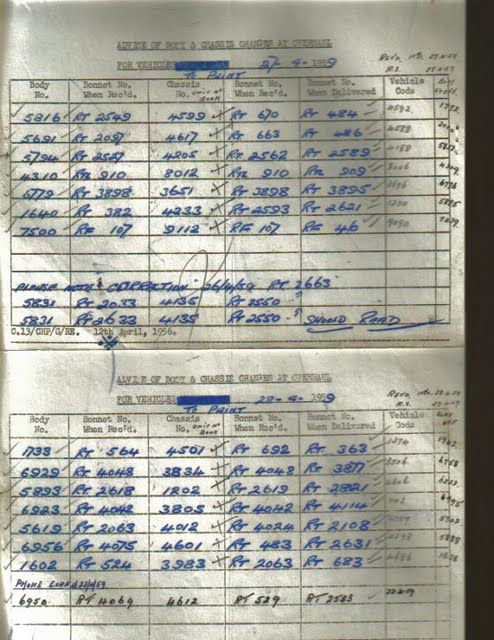 ADVICE OF BODY & CHASSIS CHANGES AT OVERHAUL
FOR VEHICLES 27-4-1959
TO PRINT
Body No. Bonnet No. When Rec'd. Chassis No. Bonnet No. When Rec'd. Bonnet No. When Delivered Vehicle Code
5816 RT 2549 4599 RT 670 RT 484 4592
5691 RT 2097 4617 RT 663 RT 486 4588
5794 RT 2527 4205 RT 2562 RT 2589 4188
4310 RTL 910 8012 RTL 910 RTL 909
6779 RT 3898 3651 RT 3898 RT 3895
1640 RT 382 4233 RT 2593 RT 2621
7500 RF 107 9112 RF 107 RF 46
PLEASE NOTE CORRECTION 26/4/59 RT 2663
5831 RT 2033 4135 RT 2550
5831 RT 2633 4135 RT 2550 SHOULD READ
C.13/CHP/G/RE. 12th April, 1956.
ADVICE OF BODY & CHASSIS CHANGES AT OVERHAUL
FOR VEHICLES 28-4-1959
TO PRINT
Body No. Bonnet No. When Rec'd. Chassis No. Bonnet No. When Rec'd. Bonnet No. When Delivered Vehicle Code
1733 RT 564 4501 RT 692 RT 363
6929 RT 4048 3834 RT 4048 RT 3877
5893 RT 2618 1202 RT 2619 RT 2821
6923 RT 4042 3805 RT 4042 RT 4114
5619 RT 2063 4012 RT 4024 RT 2108
6956 RT 4075 4601 RT 483 RT 2631
1602 RT 524 3983 RT 2063 RT 683
PHONE CORR
6950 RT 4069 4612 RT 529 RT 2533